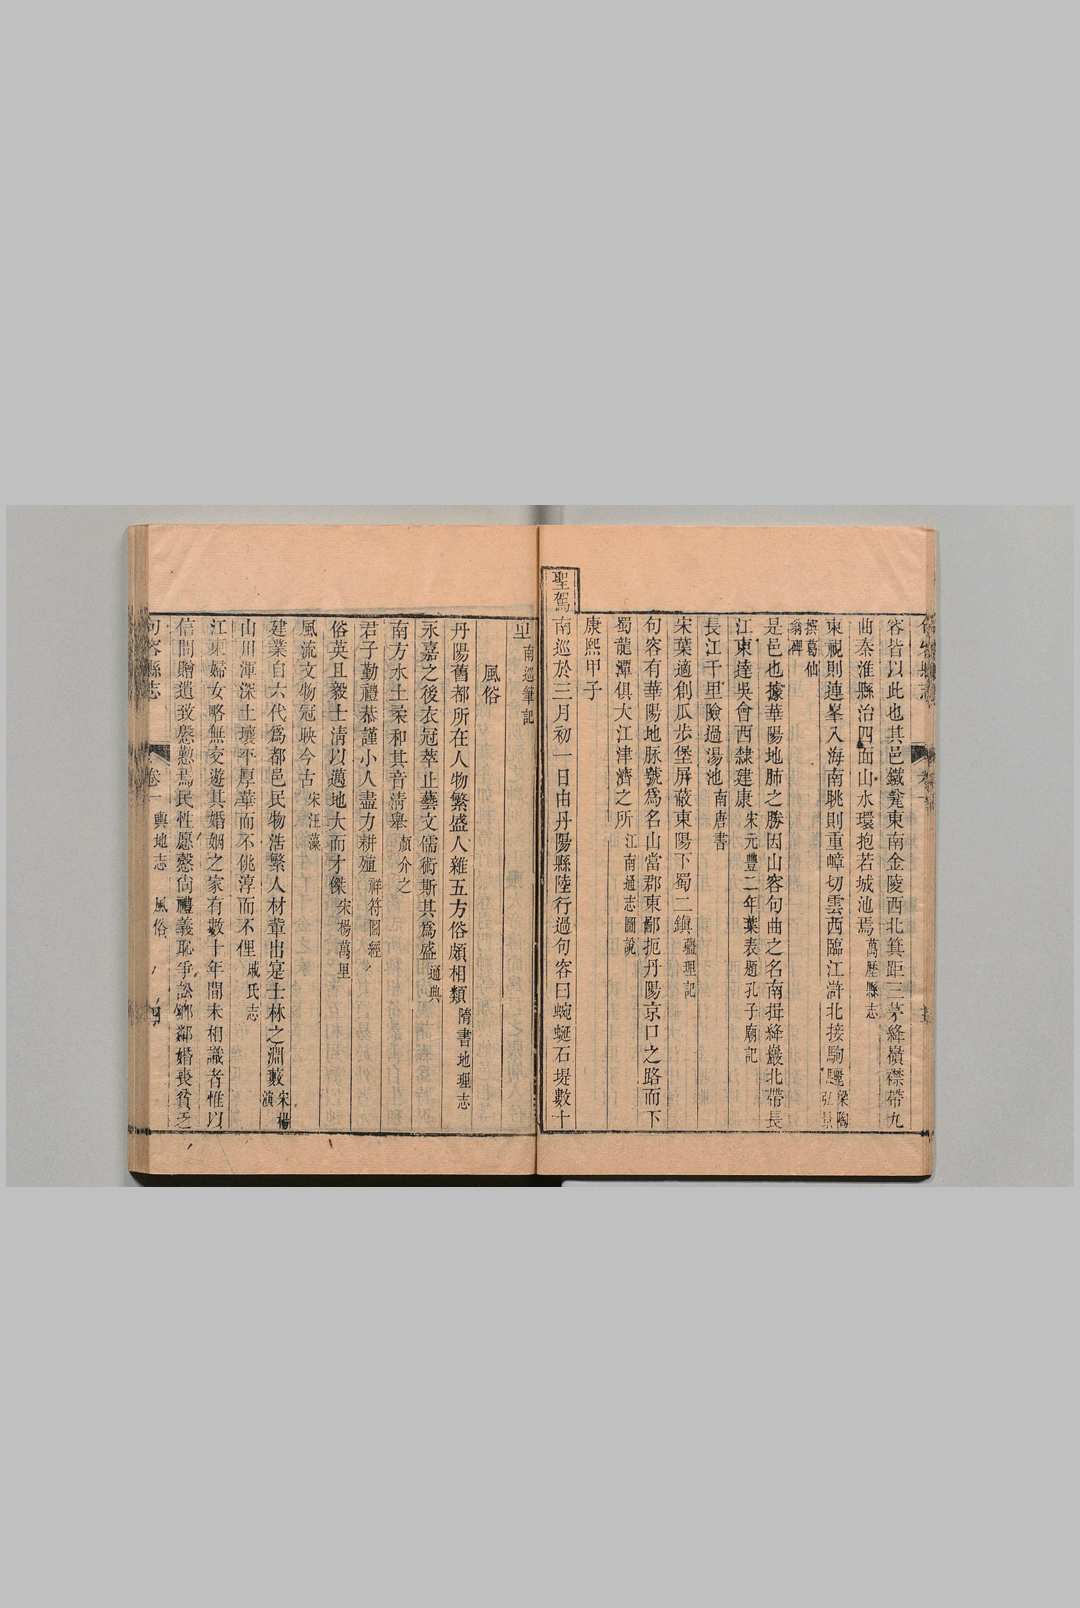 容皆以此也其邑鐵甕東南金陵西北箕距三茅絳嶺襟帶九
曲秦淮縣治四面山水環抱若城池焉萬歷縣志
東視則連峯入海南眺則重嶂切雲西臨江滸北接駒驪梁陶弘景
撰葛仙翁碑
是邑也據華陽地肺之勝因山容句曲之名南揖絳巖北帶長
江東達吳會西隸建康宋元豐二年葉表題孔子廟記
長江千里險過湯池南唐書
宋葉適創瓜步堡屏蔽東陽下蜀二鎮疆理記
句容有華陽地脉號爲名山當郡東鄙扼丹陽京口之路而下
蜀龍潭俱大江津濟之所江南通志圖說
康熙甲子
聖駕南巡於三月初一日由丹陽縣陸行過句容曰蜿蜒石堤數十
里南巡筆記
風俗
丹陽舊都所在人物繁盛人雜五方俗頗相類隋書地理志
永嘉之後衣冠萃止藝文儒術斯其爲盛通典
南方水土柔和其音清舉顏介之
君子勤禮恭謹小人盡力耕殖祥符圖經
俗英且毅士清以邁地大而才傑宋楊萬里
風流文物冠映今古宋汪藻
建業自六代爲都邑民物浩繁人材輩出寔士林之淵藪宋楊演
山川渾深土壤平厚華而不佻淳而不俚戚氏志
江東婦女略無交遊其婚姻之家有數十年間未相識者惟以
信問贈遺致慇懃焉民性愿慤尙禮義恥爭訟鄉鄰婚喪貧乏
句容縣志 卷一 輿地志 風俗